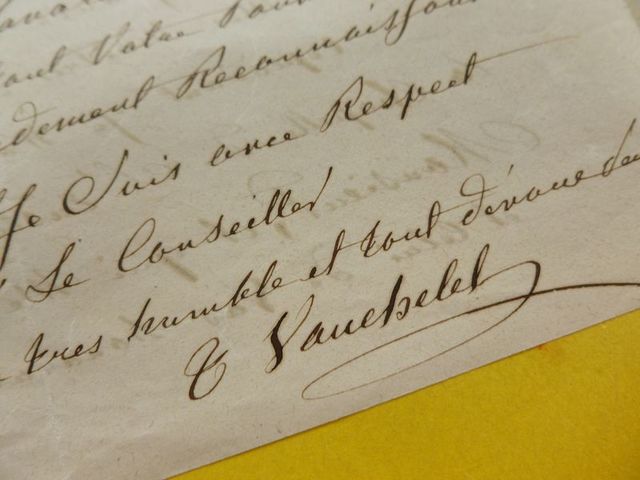 tout Votre
Reconnaissan
Je Suis avec Respect
Le Conseiller
tres humble et tout dévoué
T Vauchelet